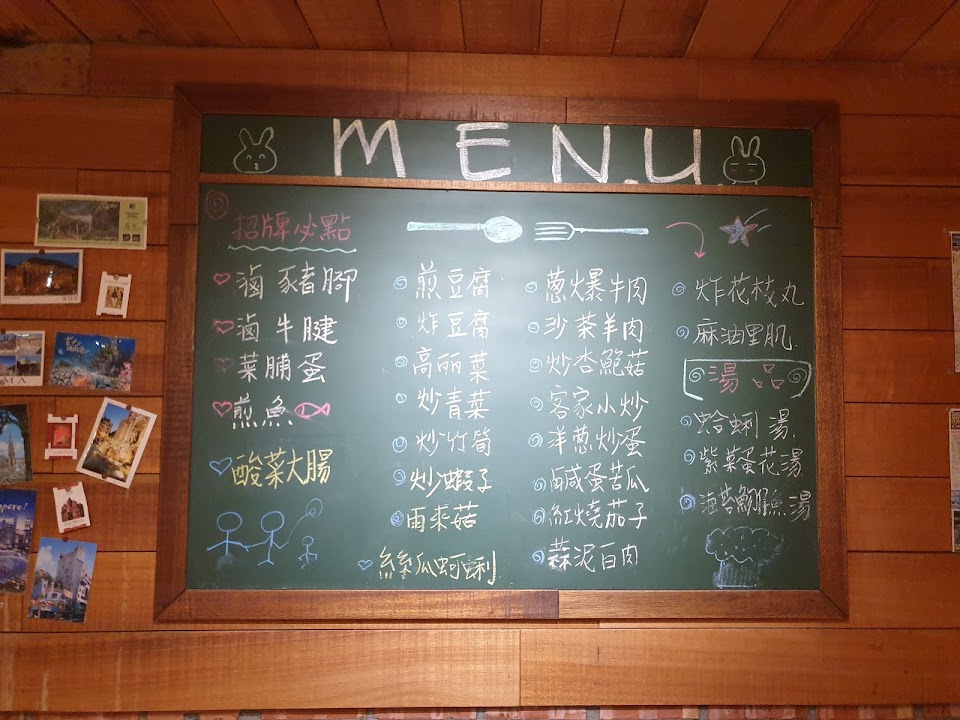 MENU
招牌必點
滷豬腳
滷牛腱
菜脯蛋
煎魚
酸菜大腸
煎豆腐
炸豆腐
高丽菜
炒青菜
炒竹筍
炒蝦子
雨来菇
絲瓜蚵蜊
蔥爆牛肉
沙茶羊肉
炒杏鮑菇
客家小炒
洋蔥炒蛋
鹹蛋苦瓜
紅燒茄子
蒜泥白肉
炸花枝丸
麻油里肌
湯品
蛤蜊湯
紫菜蛋花湯
海苔魩仔魚湯